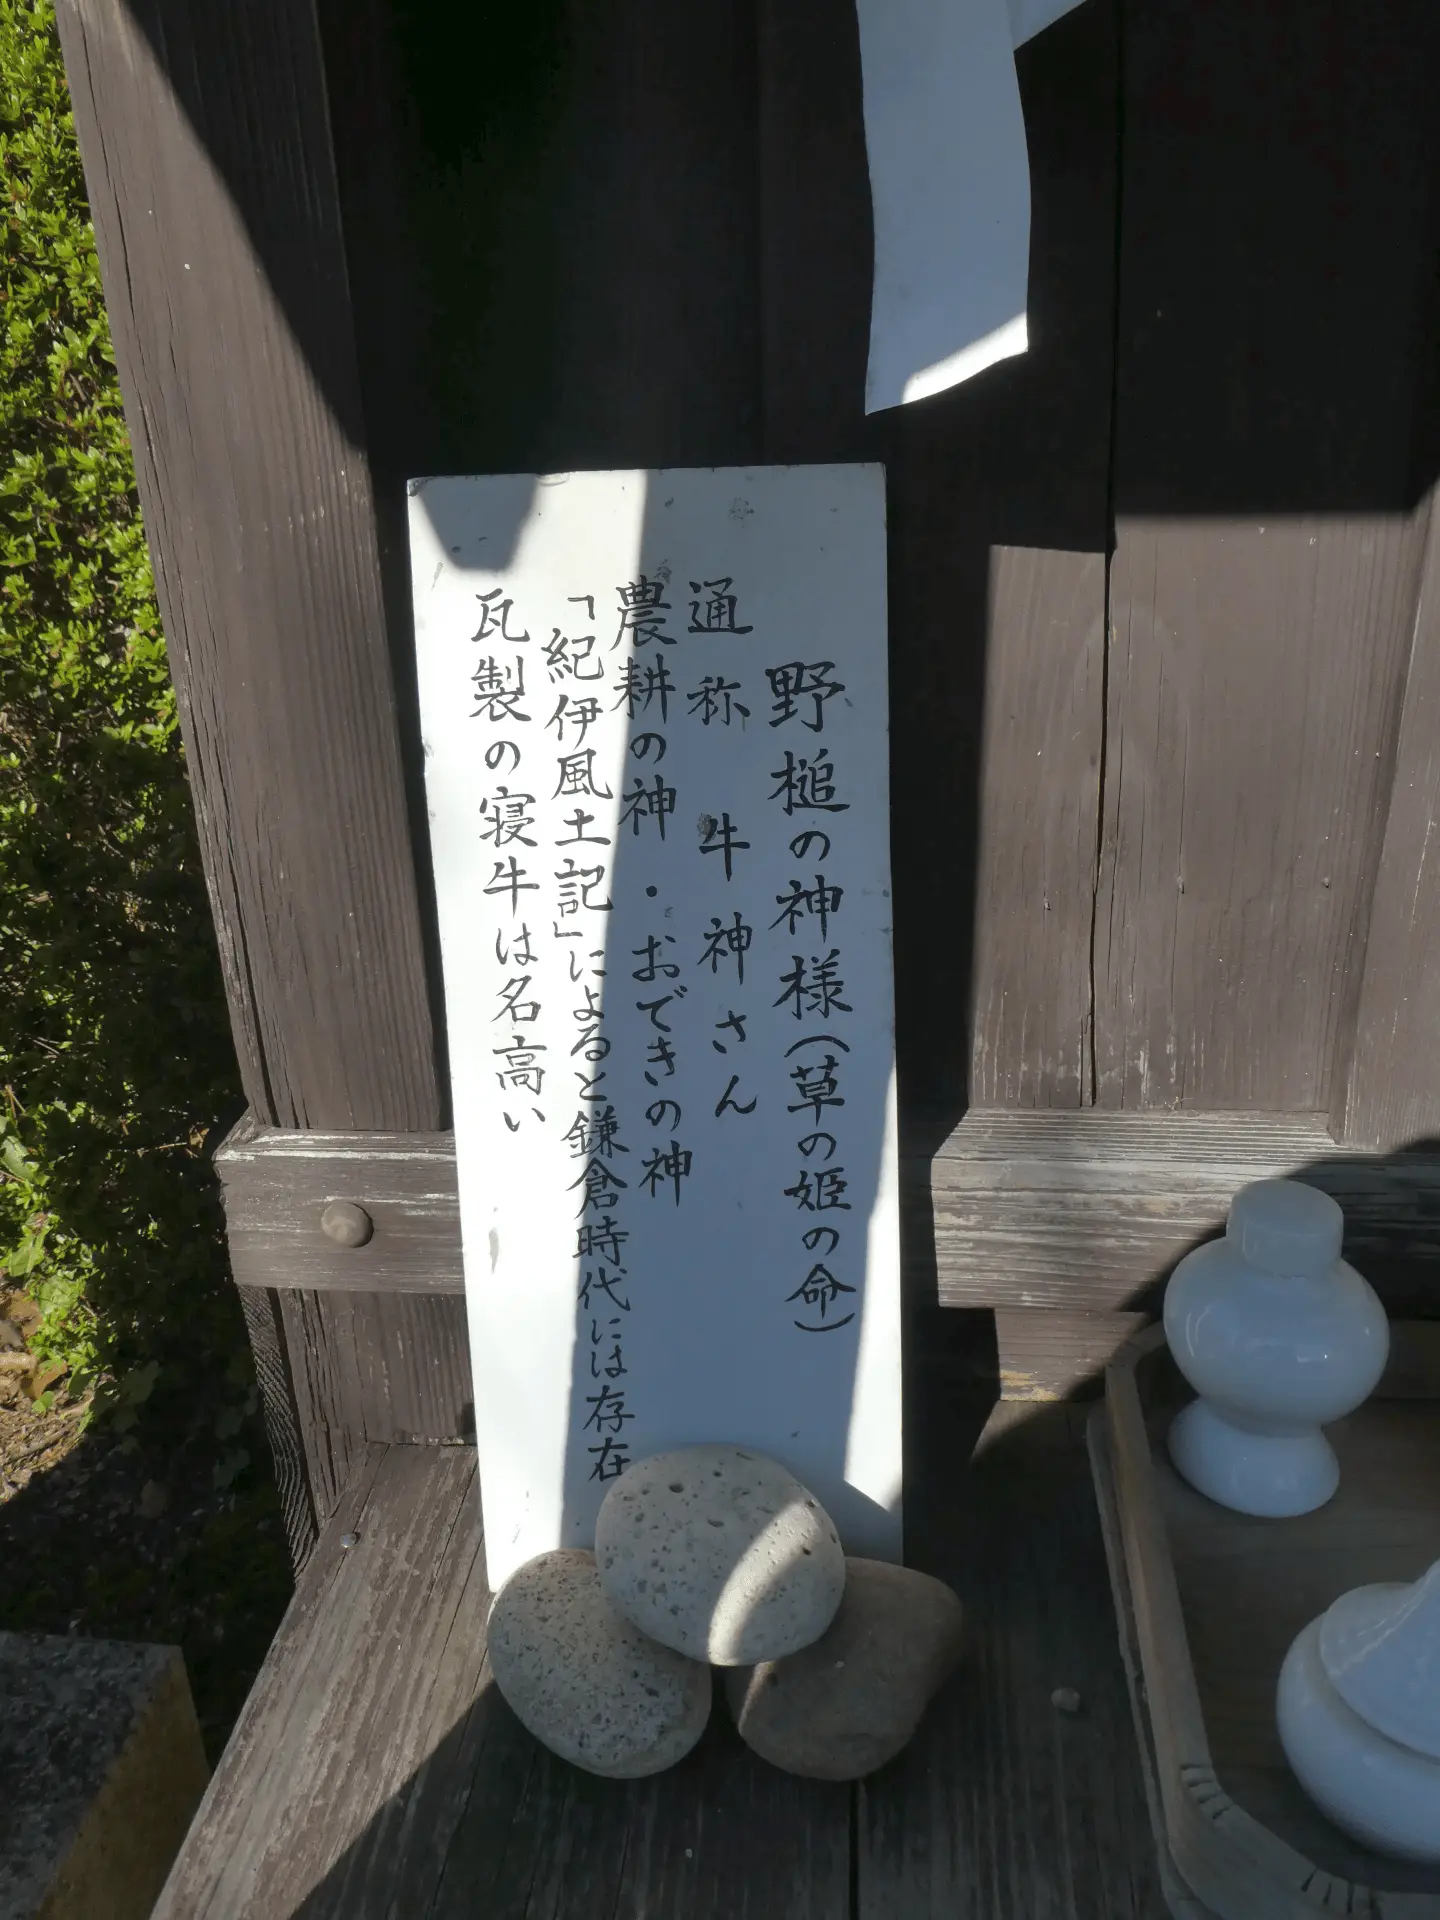 野槌の神様（草の姫の命）
通称 牛神さん
農耕の神・おできの神
「紀伊風土記」によると鎌倉時代には存在
瓦製の寝牛は名高い